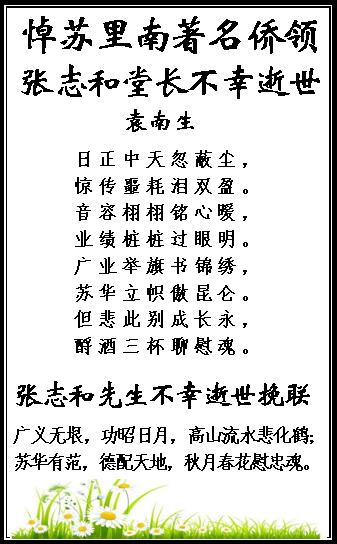 悼苏里南著名侨领
张志和堂长不幸逝世
袁南生
日正中天忽蔽尘，
惊传噩耗泪双盈。
音容栩栩铭心暖，
业绩桩桩过眼明。
广业举旗书锦绣，
苏华立帜傲昆仑。
但悲此别成长永，
酹酒三杯聊慰魂。
张志和先生不幸逝世挽联
广义无垠，功昭日月，高山流水悲化鹤；
苏华有范，德配天地，秋月春花慰忠魂。